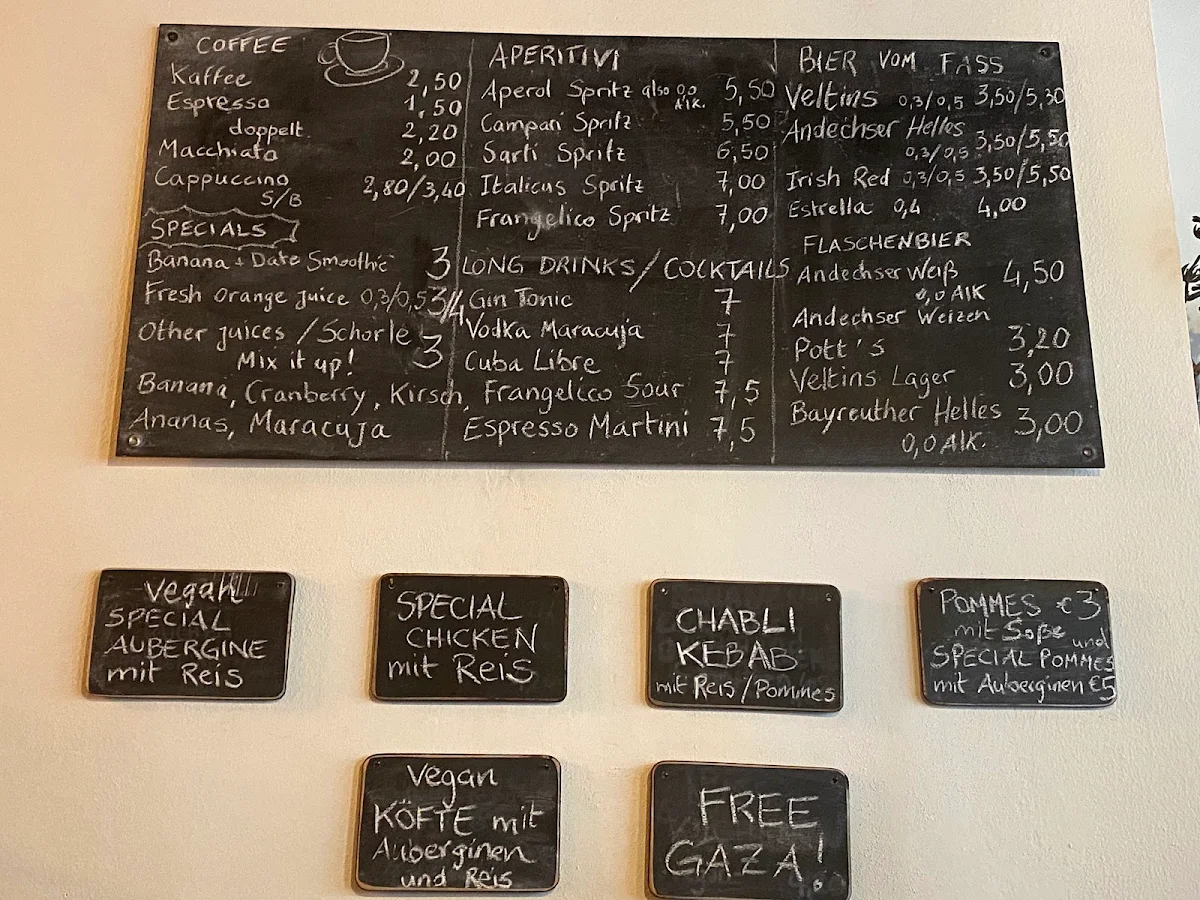 COFFEE
Kaffee 2,50
Espresso 1,50
doppelt. 2,20
Macchiato 2,00
Cappuccino 2,80/3,40
S/B
SPECIALS
Banana + Date Smoothie 3
Fresh Orange Juice 0,3/0,5 3/4
Other juices / Schorle 3
Mix it up!
Banana, Cranberry, Kirsch,
Ananas, Maracuja
APERITIVI
Aperol Spritz also 0,0 Alk. 5,50
Campari Spritz 5,50
Sarti Spritz 6,50
Italicus Spritz 7,00
Frangelico Spritz 7,00
LONG DRINKS/COCKTAILS
Gin Tonic 7
Vodka Maracuja 7
Cuba Libre 7
Frangelico Sour 7,5
Espresso Martini 7,5
BIER VOM FASS
Veltins 0,3/0,5 3,50/5,30
Andechser Helles
0,3/0,5 3,50/5,50
Irish Red 0,3/0,5 3,50/5,50
Estrella 0,4 4,00
FLASCHENBIER
Andechser Weiß 4,50
0,0 Alk
Andechser Weizen
Pott's 3,20
Veltins Lager 3,00
Bayreuther Helles 3,00
0,0 Alk.
Vegan
SPECIAL
AUBERGINE
mit Reis
SPECIAL
CHICKEN
mit Reis
CHABLI
KEBAB
mit Reis/Pommes
POMMES €3
mit Soße und
SPECIAL POMMES
mit Auberginen €5
Vegan
KÖFTE mit
Auberginen
und Reis
FREE
GAZA!